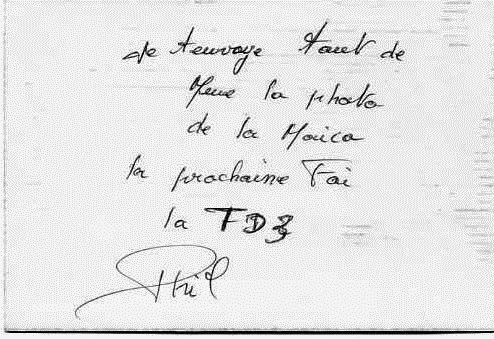 Je t'envoye tout de
Meme la photo
de la Moica
la prochaine Foi
la TD3
Phil